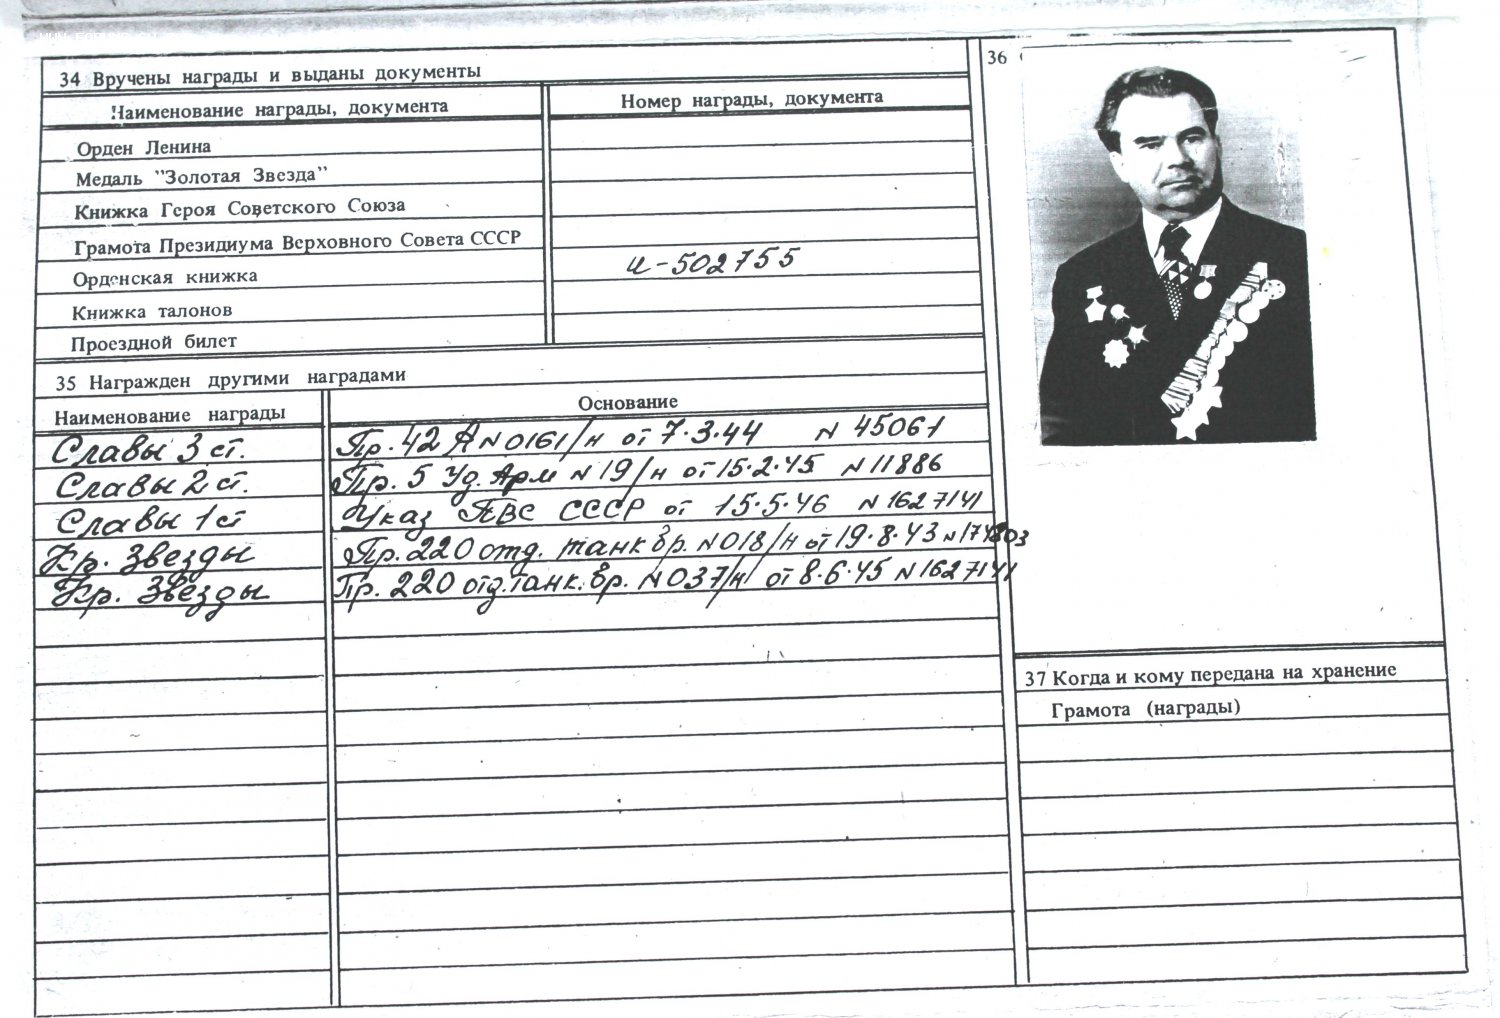 34 Вручены награды и выданы документы
Наименование награды, документа
Номер награды, документа
Орден Ленина
Медаль "Золотая Звезда"
Книжка Героя Советского Союза
Грамота Президиума Верховного Совета СССР
Орденская книжка И-502755
Книжка талонов
Проездной билет
35 Награжден другими наградами
Наименование награды
Основание
Славы 3 ст. Пр. 42 А N 0161/н от 7.3.44 N 45061
Славы 2 ст. Пр. 5 Уд. Арм N 19/н от 15.2.45 N 11886
Славы 1 ст Указ ПВС СССР от 15.5.46 N 1627141
Кр. Звезды Пр. 220 отд. танк бр. N 018/н от 19.8.43
Кр. Звезды Пр. 220 отд. танк. бр. N 037/н от 8.6.45 N 1627141
36
37 Когда и кому передана на хранение
Грамота (награды)